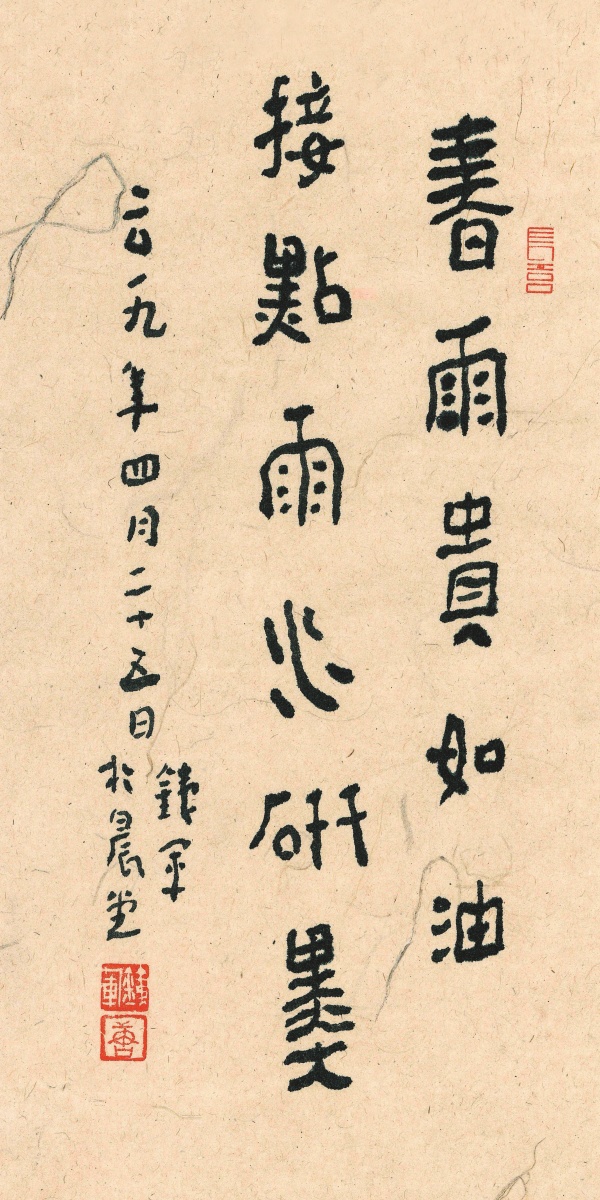 春雨貴如油
接點雨水研墨
二〇一九年四月二十五日
銕軍
於晨堂